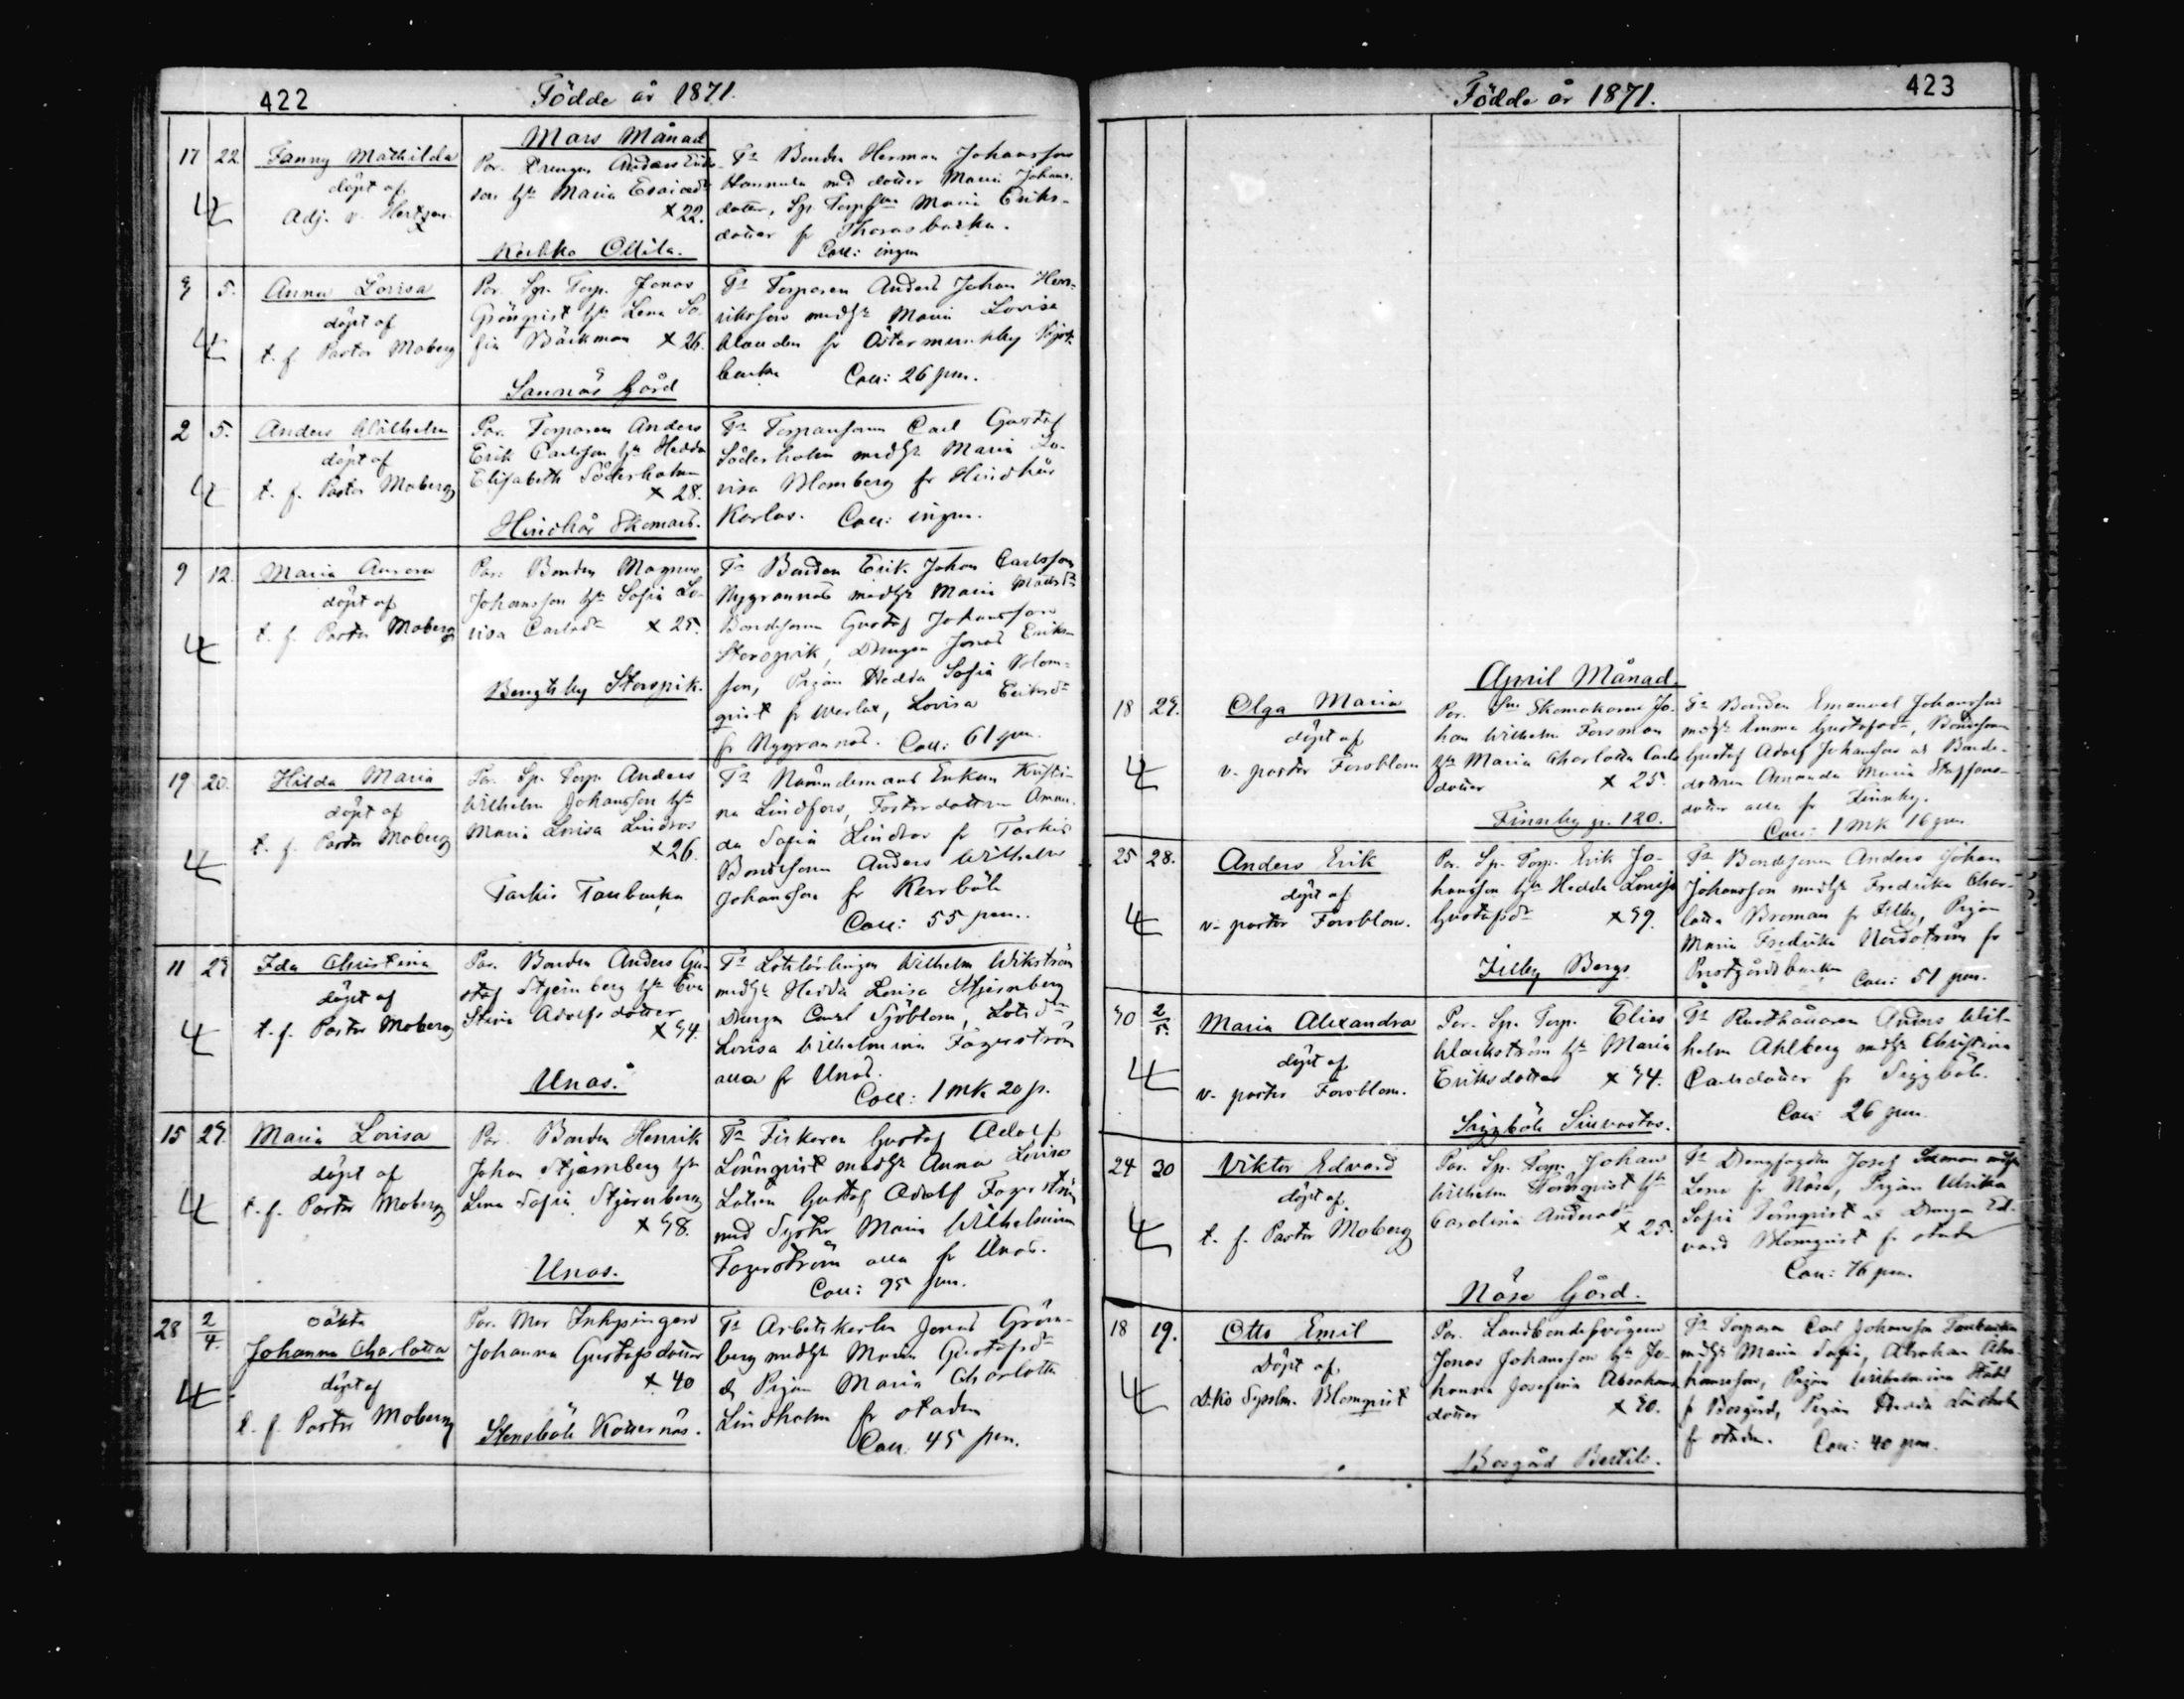 422
Födde år 1871.
Mars Månad
17 22 Fanny Mathilda
döpt af
Adj. v. Hertzen
Par. Drengen Anders Eriks-
son h:u Maria Esaiasd:r
x 22.
Karkko Ollila.
F:a Bonden Herman Johansson
Hannula med dotter Maria Johans-
dotter, Sp. Torp Maria Eriks-
dotter fr Thorasbacka.
Coll: ingen
5. Anna Lovisa
döpt af
t. f. Pastor Moberg
Par. Sp. Torp. Jonas
Grönqvist h:u Lena So-
fia Bäckman x 26.
Sannäs Gård
F:a Torparen Anders Johan Hen-
riksson med h:u Maria Lovisa
fr Östermunkby
backa Coll: 26 pen.
2 5. Anders Wilhelm
döpt af
t. f. Pastor Moberg
Par. Torparen Anders
Erik Carlsson h:u Hedda
Elisabeth Söderholm
x 28.
Hindhår Skomars.
F:a Torparesonen Carl Gustaf
Söderholm med h:u Maria Lo-
visa Blomberg fr Hindhår
Karlas. Coll: ingen.
9 12. Maria Aurora
döpt af
t. f. Pastor Moberg
Par. Bonden Magnus
Johansson h:u Sofia Lo-
visa Carlsd:r x 25.
Bengtsby Storspik.
F:a Bonden Erik Johan Carlsson
Nygrannas med h:u Maria Matsd:r
Bondesonen Gustaf Johansson
Storspik, Drengen Jonas Eriks-
son, Pigan Hedda Sofia Blom-
qvist fr Werlax, Lovisa Eriksd:r
fr Nygrannas. Coll: 61 pen.
19 20. Hilda Maria
döpt af
t. f. Pastor Moberg
Par. Sp. Torp. Anders
Wilhelm Johansson h:u
Maria Lovisa Lindros
x 26.
Tarkis Taubacka
F:a Nämndemans Enkan Kristi-
na Lindfors, Fosterdottren Aman-
da Sofia Lindros fr Tarkis
Bondesonen Anders Wilhelm
Johansson fr Kerrböle
Coll: 55 pen.
11 29 Ida Christina
döpt af
t. f. Pastor Moberg
Par. Bonden Anders Gu-
staf Stjernberg h:u Eva
Stina Adolfsdotter
x 34.
Unas.
F:a Lotslärlingen Wilhelm Wikström
med h:u Hedda Lovisa Stjernberg
Drengen Carl Sjöblom, Lotsd:n
Lovisa Wilhelmina Fagerström
alla fr Unas.
Coll: 1 mk 20 p.
15 29. Maria Lovisa
döpt af
t. f. Pastor Moberg
Par. Bonden Henrik
Johan Stjernberg h:u
Lena Sofia Stjernberg
x 38.
Unas.
F:a Fiskaren Gustaf Adolf
Lönnqvist med h:u Anna Lovisa
Lotsen Gustaf Adolf Fagerström
med Syster Maria Wilhelmina
Fagerström alla fr Unas.
Coll: 95 pen.
28 2/4. oäkta
Johanna Charlotta
döpt af
t. f. Pastor Moberg
Par. Mor Inhysingen
Johanna Gustafsdotter
x 40
Stensböle Kotternäs.
F:a Arbetskarlen Jonas Grön-
berg med h:u Maria Gustafsd:r
& Pigan Maria Charlotta
Lindholm fr staden
Coll. 45 pen.
Födde år 1871.
423
April Månad.
18 29. Olga Maria
döpt af
v. pastor Forsblom
Par. Skomakaren Jo-
han Wilhelm Forsman
h:u Maria Charlotta Carls-
dotter x 25.
Finnby p. 120.
F:a Bonden Emanuel Johansson
med h:u Emma Gustafsd:r, Bondesonen
Gustaf Adolf Johansson o. Bonde-
dottren Amanda Maria Staffans-
dotter alla fr Finnby.
Coll: 1 mk 16 pen
25 28. Anders Erik
döpt af
v. pastor Forsblom.
Par. Sp. Torp. Erik Jo-
hansson h:u Hedda Lovisa
Gustafsd:r x 39.
Illby Bergs
F:a Bondesonen Anders Johan
Johansson med h:u Fredrika Char-
lotta Broman fr Illby, Pigan
Maria Fredrika Nordström fr
Prostgårdsbacken Coll: 51 pen.
30 2/5. Maria Alexandra
döpt af
v. pastor Forsblom.
Par. Sp. Torp. Elias
Wackström h:u Maria
Eriksdotter x 34.
Siggböle Sinvastas.
F:a Rusthållaren Anders Wil-
helm Ahlberg med h:u Christina
Carlsdotter fr Siggböle.
Coll: 26 pen.
24 30 Viktor Edvard
döpt af
t. f. Pastor Moberg
Par. Sp. Torp. Johan
Wilhelm Törnqvist h:u
Carolina Andersd:r
x 25.
Näse Gård.
F:a Drengfogden Josef med h:u
Lena fr Näse, Pigan Ulrika
Sofia Törnqvist o. Drengen Ed-
vard Blomqvist fr staden
Coll: 76 pen.
18 19. Otto Emil
Döpt af
Blomqvist
Par. Landbondesvågern
Jonas Johansson h:u Jo-
hanna Josefina Abrahams-
dotter x 30.
Bosgård Bertils.
F:a Torparen Carl Johansson Taubacka
med h:u Maria Sofia, Abraham
hansson, Pigan Wilhelmina
fr Bosgård, Pigan Hedda Lindholm
fr staden. Coll: 40 pen.